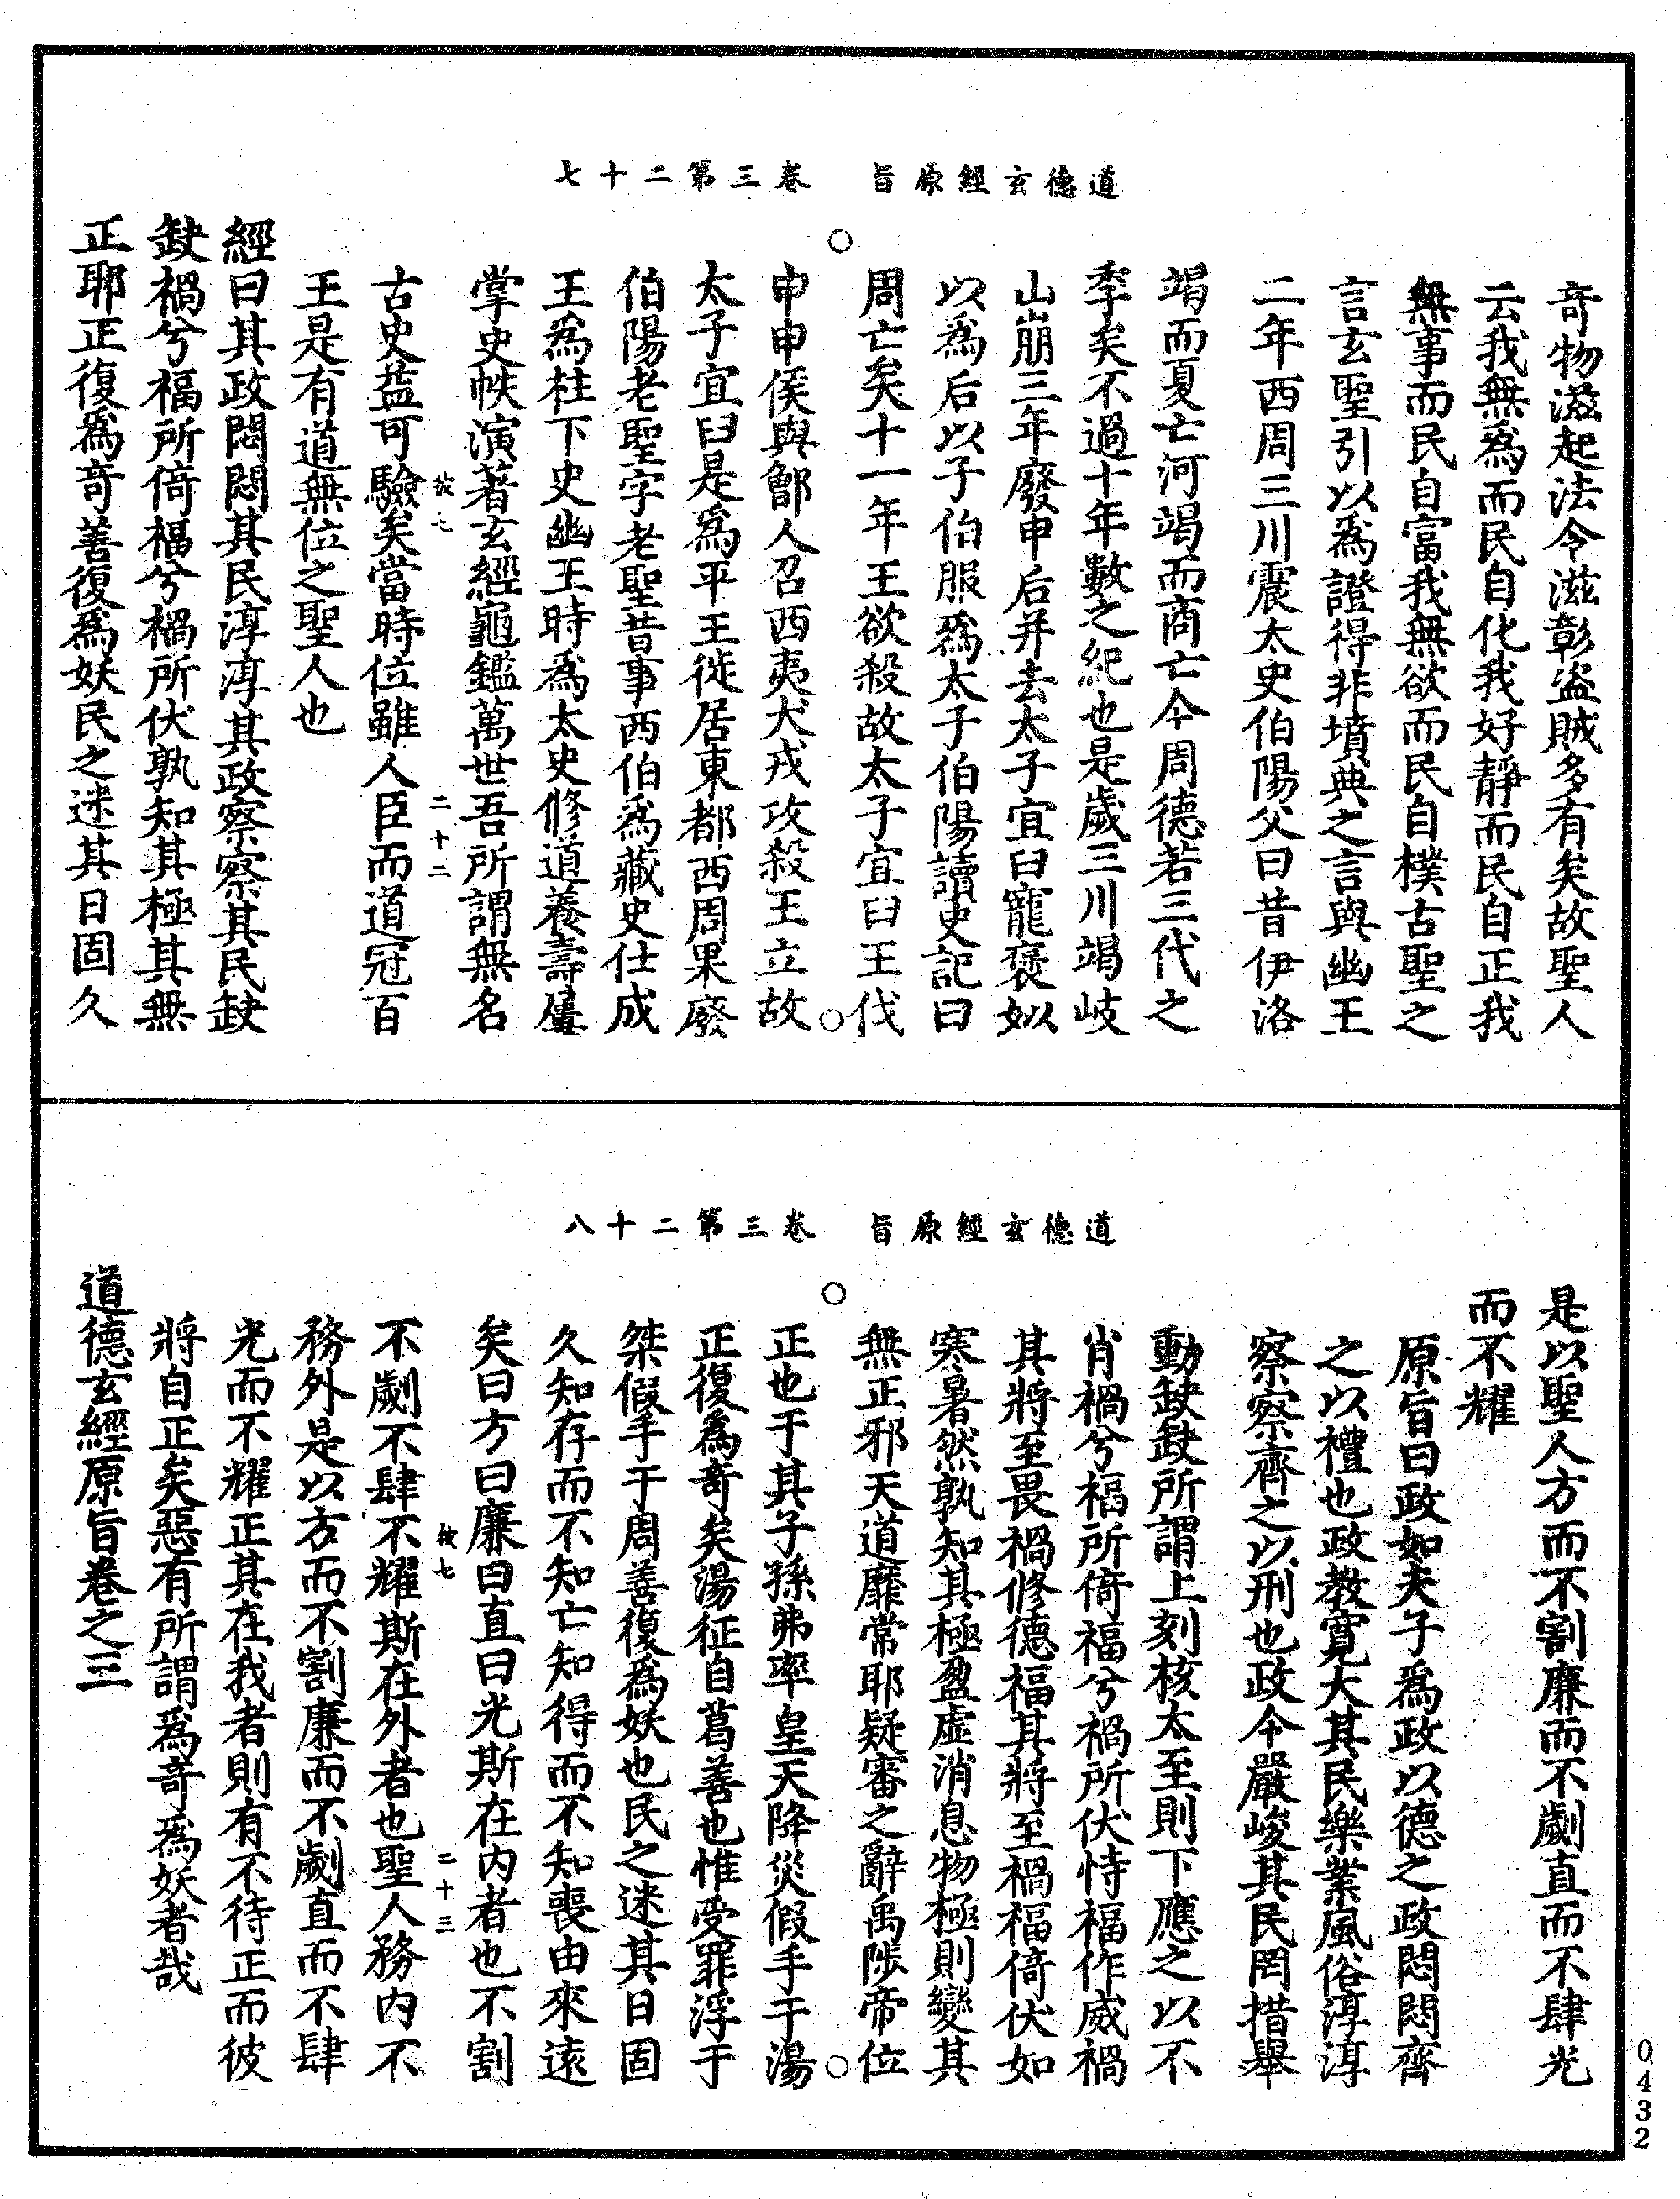 道德玄經原旨　卷三第二十七
奇物滋起法令滋彰盜賊多有矣故聖人
云我無爲而民自化我好靜而民自正我
無事而民自富我無欲而民自樸古聖之
言玄聖引以爲證得非墳典之言與幽王
二年西周三川震太史伯陽父曰昔伊洛
竭而夏亡河竭而商亡今周德若三代之
季矣不過十年數之紀也是歲三川竭岐
山崩三年廢申后并去太子宜臼寵褒姒
以爲后以子伯服爲太子伯陽讀史記曰
周亡矣十一年王欲殺故太子宜臼王伐
申申侯與鄫人召西夷犬戎攻殺王立故
太子宜臼是爲平王徙居東都西周果廢
伯陽老聖字老聖昔事西伯爲藏史仕成
王爲柱下史幽王時爲太史修道養壽屢
掌史帙演著玄經龜鑑萬世吾所謂無名
古史益可驗矣當時位雖人臣而道冠百
王是有道無位之聖人也
經曰其政悶悶其民淳淳其政察察其民缺
缺禍兮福所倚福兮禍所伏孰知其極其無
正耶正復爲奇善復爲妖民之迷其日固久
二十二
道德玄經原旨　卷三第二十八
是以聖人方而不割廉而不劌直而不肆光
而不耀
原旨曰政如夫子爲政以德之政悶悶齊
之以禮也政教寬大其民樂業風俗淳淳
察察齊之以刑也政令嚴峻其民罔措舉
動缺缺所謂上刻核太至則下應之以不
肖禍兮福所倚福兮禍所伏恃福作威禍
其將至畏禍修德福其將至禍福倚伏如
寒暑然孰知其極盈虛消息物極則變其
無正邪天道靡常耶疑審之辭禹陟帝位
正也于其子孫弗率皇天降災假手于湯
正復爲奇矣湯征自葛善也惟受罪浮于
桀假手于周善復爲妖也民之迷其日固
久知存而不知亡知得而不知喪由來遠
矣曰方曰廉曰直曰光斯在內者也不割
不劌不肆不耀斯在外者也聖人務內不
務外是以方而不割廉而不劌直而不肆
光而不耀正其在我者則有不待正而彼
將自正矣惡有所謂爲奇爲妖者哉
道德玄經原旨卷之三
二十三
0432